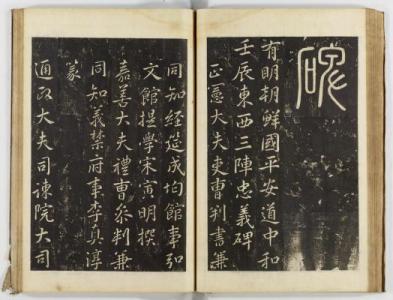 碑
有明朝鮮國平安道中和
壬辰東西三陣忠義碑
正憲大夫吏曹判書兼
同知經筵成均館事弘
文館提學宋寅明撰
嘉善大夫禮曹叅判兼
同知義禁府事李真淳
篆
通政大夫司諫院大司